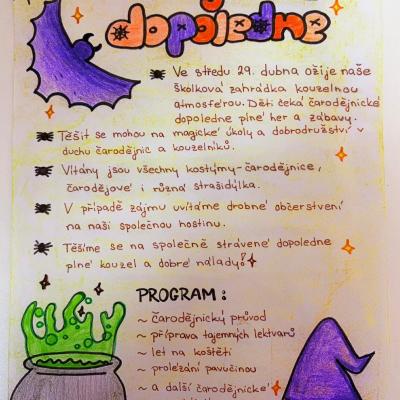 dopoledne
Ve středu 29. dubna ožije naše
školková zahrádka kouzelnou
atmosférou. Děti čeká čarodějnické
dopoledne plné her a zábavy.
Těšit se mohou na magické úkoly a dobrodružství v
duchu čarodějnic a kouzelníků.
Vítány jsou všechny kostýmy - čarodějnice,
čarodějové i různá strašidýlka.
V případě zájmu uvítáme drobné občerstvení
na naší společnou hostinu.
Těšíme se na společně strávené dopoledne
plné kouzel a dobré nálady!
PROGRAM:
~ čarodějnický průvod
~ příprava tajemných lektvarů
~ let na koštěti
~ prolézání pavučinou
~ a další čarodějnické